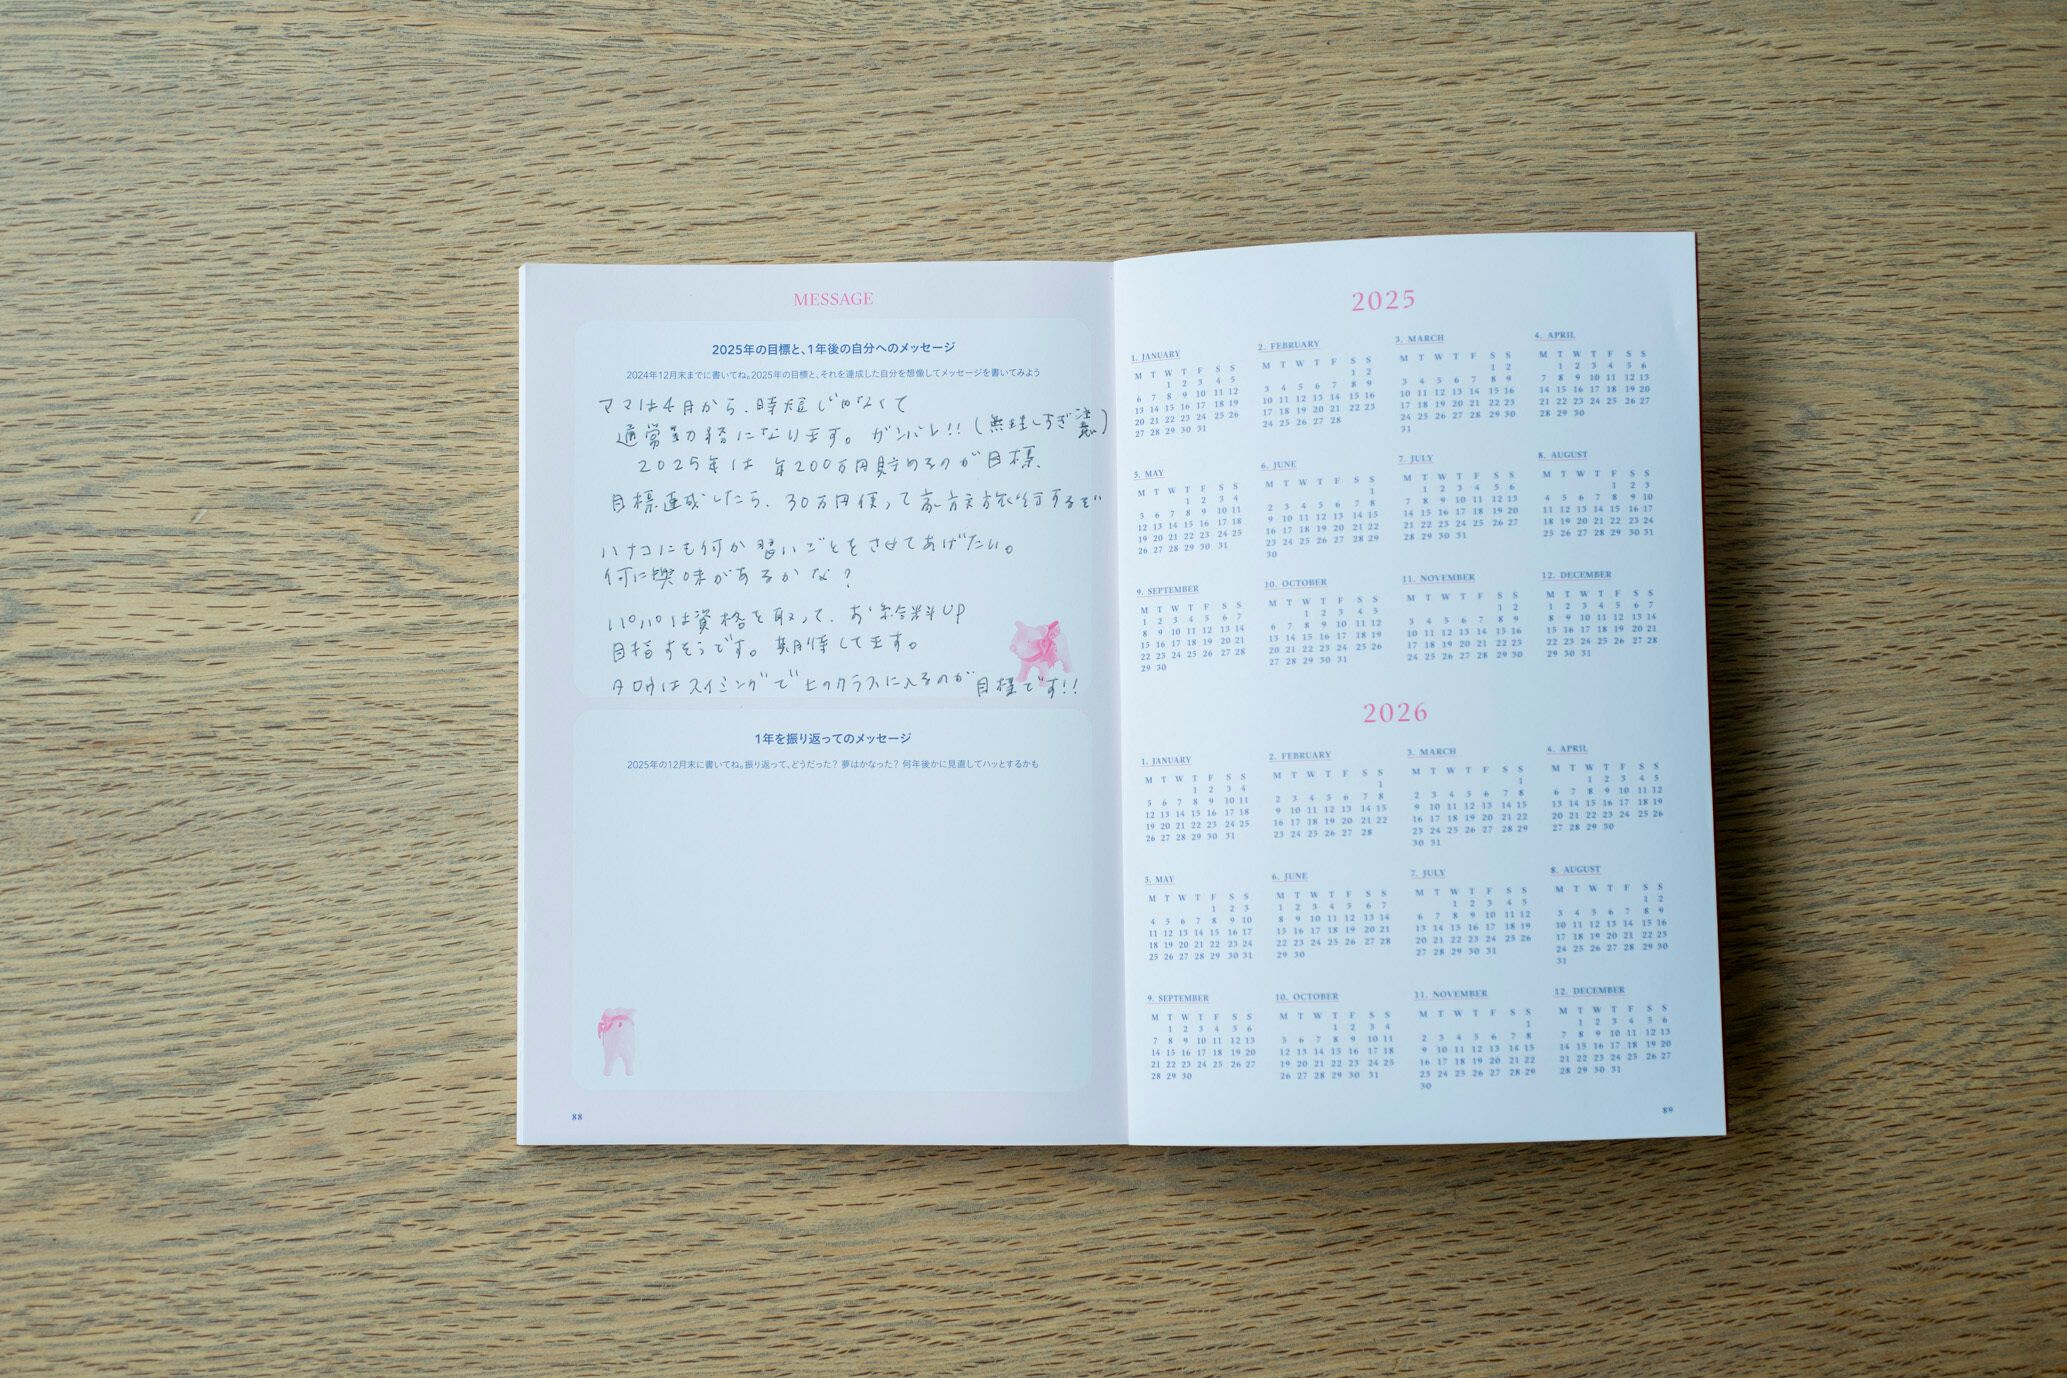 MESSAGE
2025年の目標と、1年後の自分へのメッセージ
2024年12月末までに書いてね。2025年の目標と、それを達成した自分を想像してメッセージを書いてみよう
ママは4月から、時短じゃなくて
通常勤務になります。ガンバレ!!(無理しすぎ注意)
2025年は 年200万円貯めるのが目標、
目標達成したら、30万円使って家族旅行するぞ
ハナコにも何か習いごとをさせてあげたい。
何に興味があるかな?
パパは資格を取って、お給料UP
目指すそうです。期待してます。
タロウはスイミングで上のクラスに入るのが目標です!!
1年を振り返ってのメッセージ
2025年の12月末に書いてね。振り返って、どうだった? 夢はかなった? 何年後かに見直してハッとするかも
88
2025
1. JANUARY
M T W T F S S
1 2 3 4 5
6 7 8 9 10 11 12
13 14 15 16 17 18 19
20 21 22 23 24 25 26
27 28 29 30 31
2. FEBRUARY
M T W T F S S
1 2
3 4 5 6 7 8 9
10 11 12 13 14 15 16
17 18 19 20 21 22 23
24 25 26 27 28
3. MARCH
M T W T F S S
1 2
3 4 5 6 7 8 9
10 11 12 13 14 15 16
17 18 19 20 21 22 23
24 25 26 27 28 29 30
31
4. APRIL
M T W T F S S
1 2 3 4 5 6
7 8 9 10 11 12 13
14 15 16 17 18 19 20
21 22 23 24 25 26 27
28 29 30
5. MAY
M T W T F S S
1 2 3 4
5 6 7 8 9 10 11
12 13 14 15 16 17 18
19 20 21 22 23 24 25
26 27 28 29 30 31
6. JUNE
M T W T F S S
1
2 3 4 5 6 7 8
9 10 11 12 13 14 15
16 17 18 19 20 21 22
23 24 25 26 27 28 29
30
7. JULY
M T W T F S S
1 2 3 4 5 6
7 8 9 10 11 12 13
14 15 16 17 18 19 20
21 22 23 24 25 26 27
28 29 30 31
8. AUGUST
M T W T F S S
1 2 3
4 5 6 7 8 9 10
11 12 13 14 15 16 17
18 19 20 21 22 23 24
25 26 27 28 29 30 31
9. SEPTEMBER
M T W T F S S
1 2 3 4 5 6 7
8 9 10 11 12 13 14
15 16 17 18 19 20 21
22 23 24 25 26 27 28
29 30
10. OCTOBER
M T W T F S S
1 2 3 4 5
6 7 8 9 10 11 12
13 14 15 16 17 18 19
20 21 22 23 24 25 26
27 28 29 30 31
11. NOVEMBER
M T W T F S S
1 2
3 4 5 6 7 8 9
10 11 12 13 14 15 16
17 18 19 20 21 22 23
24 25 26 27 28 29 30
12. DECEMBER
M T W T F S S
1 2 3 4 5 6 7
8 9 10 11 12 13 14
15 16 17 18 19 20 21
22 23 24 25 26 27 28
29 30 31
2026
1. JANUARY
M T W T F S S
1 2 3 4
5 6 7 8 9 10 11
12 13 14 15 16 17 18
19 20 21 22 23 24 25
26 27 28 29 30 31
2. FEBRUARY
M T W T F S S
1
2 3 4 5 6 7 8
9 10 11 12 13 14 15
16 17 18 19 20 21 22
23 24 25 26 27 28
3. MARCH
M T W T F S S
1
2 3 4 5 6 7 8
9 10 11 12 13 14 15
16 17 18 19 20 21 22
23 24 25 26 27 28 29
30 31
4. APRIL
M T W T F S S
1 2 3 4 5
6 7 8 9 10 11 12
13 14 15 16 17 18 19
20 21 22 23 24 25 26
27 28 29 30
5. MAY
M T W T F S S
1 2 3
4 5 6 7 8 9 10
11 12 13 14 15 16 17
18 19 20 21 22 23 24
25 26 27 28 29 30 31
6. JUNE
M T W T F S S
1 2 3 4 5 6 7
8 9 10 11 12 13 14
15 16 17 18 19 20 21
22 23 24 25 26 27 28
29 30
7. JULY
M T W T F S S
1 2 3 4 5
6 7 8 9 10 11 12
13 14 15 16 17 18 19
20 21 22 23 24 25 26
27 28 29 30 31
8. AUGUST
M T W T F S S
1 2
3 4 5 6 7 8 9
10 11 12 13 14 15 16
17 18 19 20 21 22 23
24 25 26 27 28 29 30
31
9. SEPTEMBER
M T W T F S S
1 2 3 4 5 6
7 8 9 10 11 12 13
14 15 16 17 18 19 20
21 22 23 24 25 26 27
28 29 30
10. OCTOBER
M T W T F S S
1 2 3 4
5 6 7 8 9 10 11
12 13 14 15 16 17 18
19 20 21 22 23 24 25
26 27 28 29 30 31
11. NOVEMBER
M T W T F S S
1
2 3 4 5 6 7 8
9 10 11 12 13 14 15
16 17 18 19 20 21 22
23 24 25 26 27 28 29
30
12. DECEMBER
M T W T F S S
1 2 3 4 5 6
7 8 9 10 11 12 13
14 15 16 17 18 19 20
21 22 23 24 25 26 27
28 29 30 31
89